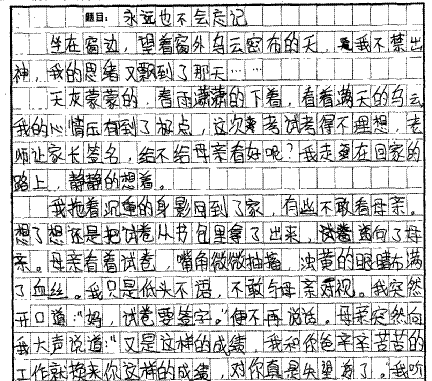 题目：永远也不会忘记
坐在窗边，望着窗外乌云密布的天，我不禁出
神，我的思绪又飘到了那天……
天灰蒙蒙的，春雨潇潇的下着，看着满天的乌云，
我的心情压有到了极点，这次考试考得不理想，老
师让家长签名，给不给母亲看好呢？我走在回家的
路上，静静的想着。
我拖着沉重的身影回到了家，有些不敢看母亲。
想了想还是把试卷从书包里拿了出来，试卷递向了母
亲。母亲看着试卷，嘴角微微抽搐，浊黄的眼睛布满
了血丝。我只是低头不语，不敢与母亲对视。我突然
开口道："妈，试卷要签字。"便不再说话。母亲突然向
我大声说道："又是这样的成绩，我和你爸辛辛苦苦的
工作就换来你这样的成绩，对你真是失望啊了。"我听